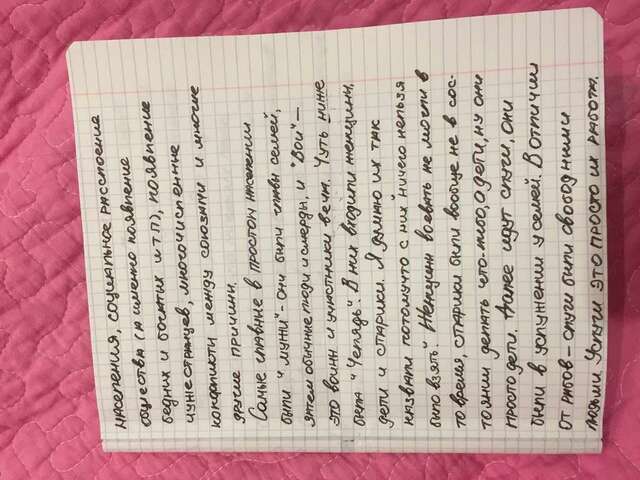 населения, социальное расслоение
общества (а именно появление
бедних и богатих и т п), появление
чужестранцев, многочисленные
конфликти между союзами и многие
другие причини.
Самые главные в простом населении
били "мужи" - они били главы семей,
затем обычные люди и смерды, и "Вои" –
это воини и участники вечи. Чуть ниже
била "Челядь". В них входили женщины,
дети и старики. Я думаю их так
назвали потомучто с них ничего нельзя
било взять. Женщини воевать не могли в
то время, старики били вообще не в сос-
тоянии делать что-то, а дети, ну они
просто дети. Далее идут слуги, они
били в услужении у семей. В отличии
от рабов - слуги били свободними
людьми. Услуги это просто их работа.